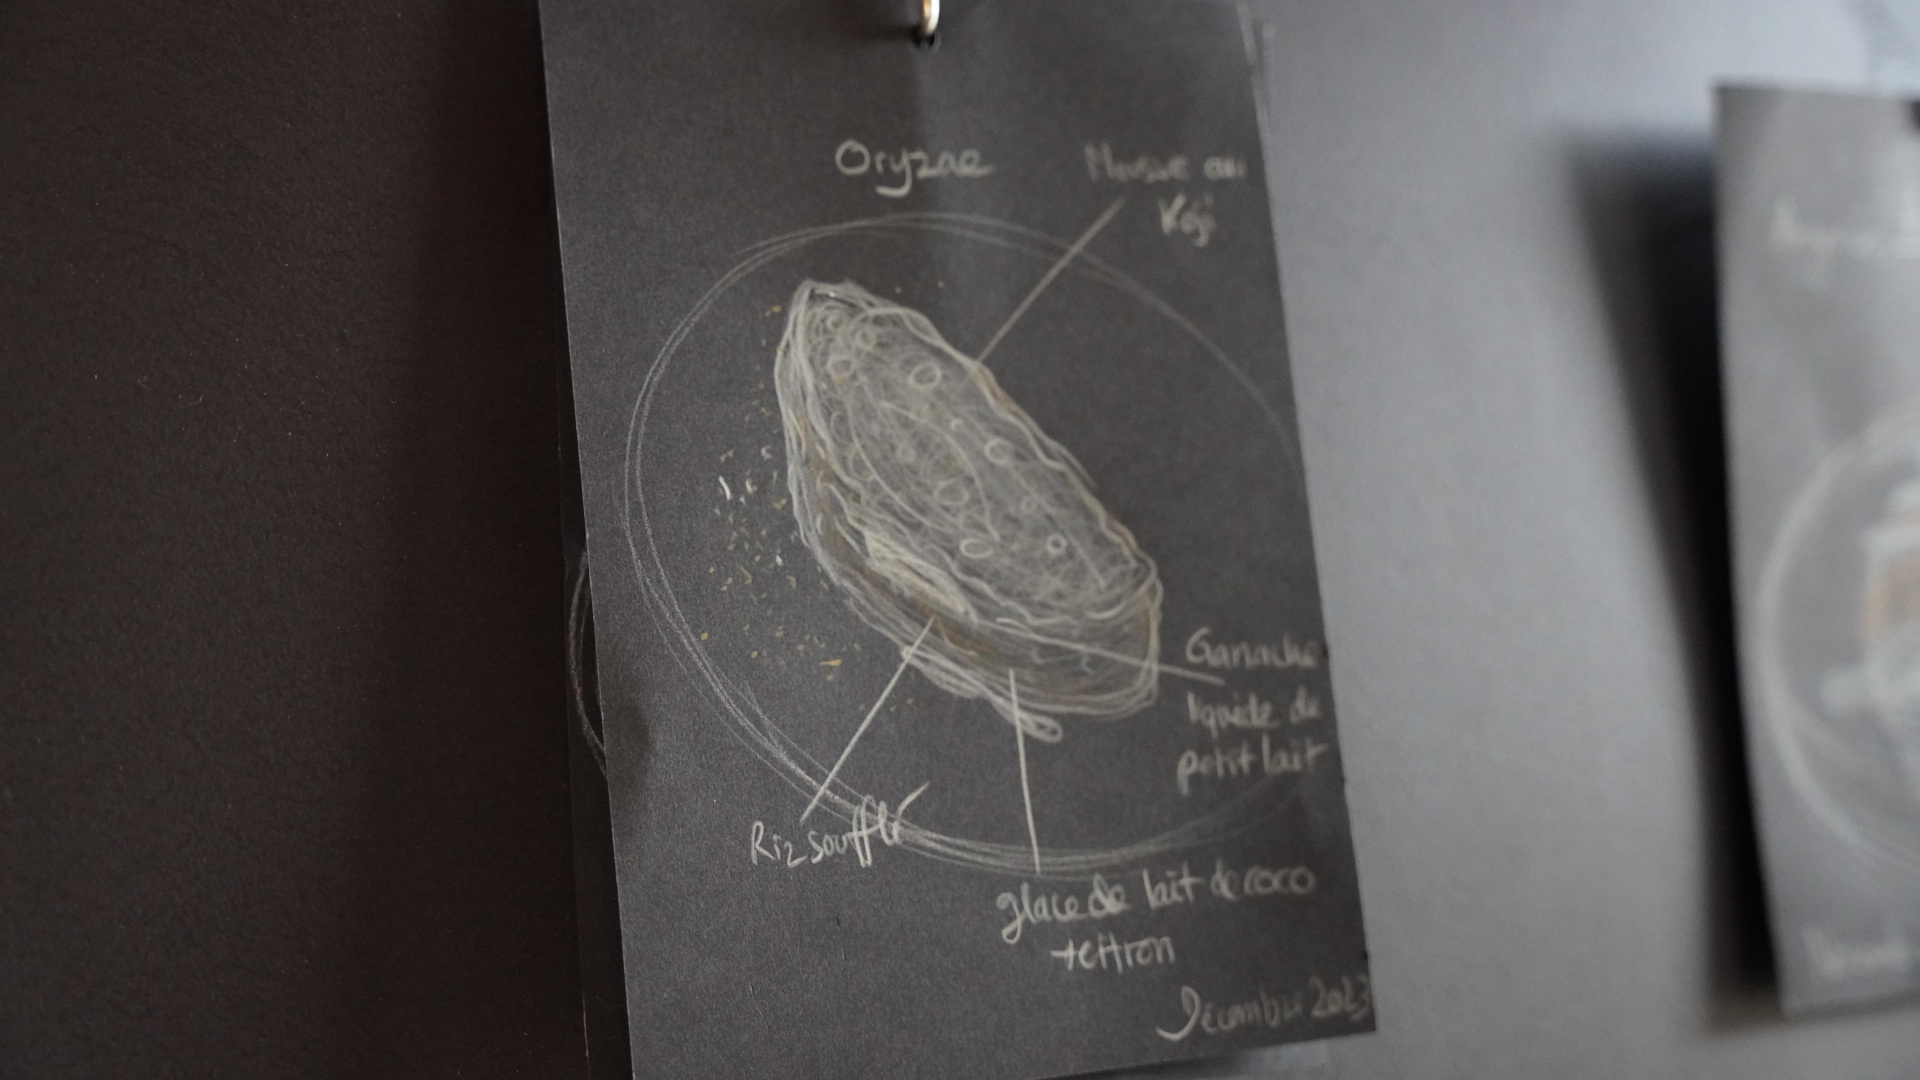 Oryzae
Mousse au
Koji
Ganache
liquide de
petit lait
Riz soufflé
glace de lait de coco
+ citron
Décembre 2023